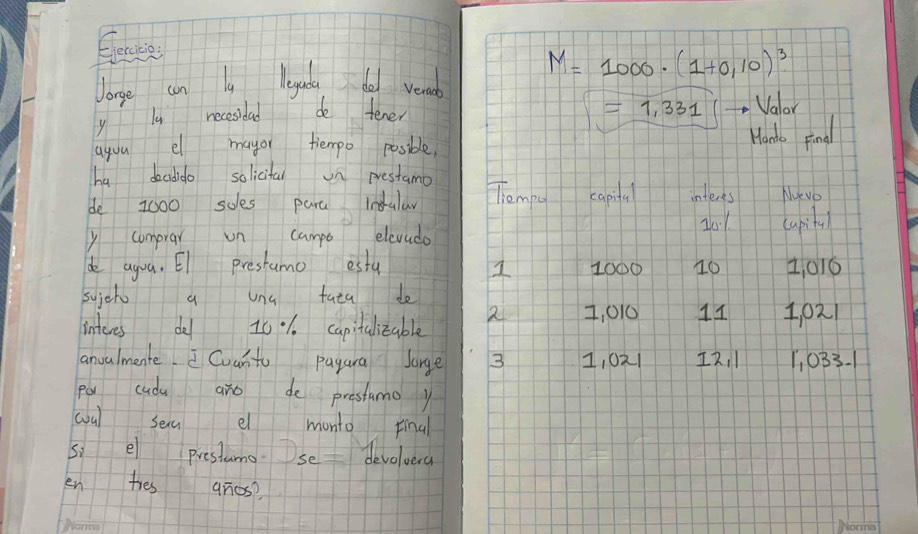 Ejercicio:
Jorge con la llegada del verano
y la necesidad de tener
agua el mayor tiempo posible,
ha decidido solicitar un prestamo
de 1000 soles para instalar
y comprar un campo elevado
de agua. El prestamo esta
sujeto a una taza de
interes del 10% capitalizable
anualmente. ¿Cuánto pagara Jorge
por cada año de prestamo y
cual sera el monto final
si el prestamo se devolvera
en tres años?
Norma
M = 1000 · (1+0,10)³
= 1,331 → Valor
Monto Final
Tiempo capital interes Nuevo
10% capital
1 1000 10 1,010
2 1,010 11 1,021
3 1,021 12,1 1,033.1
Norma